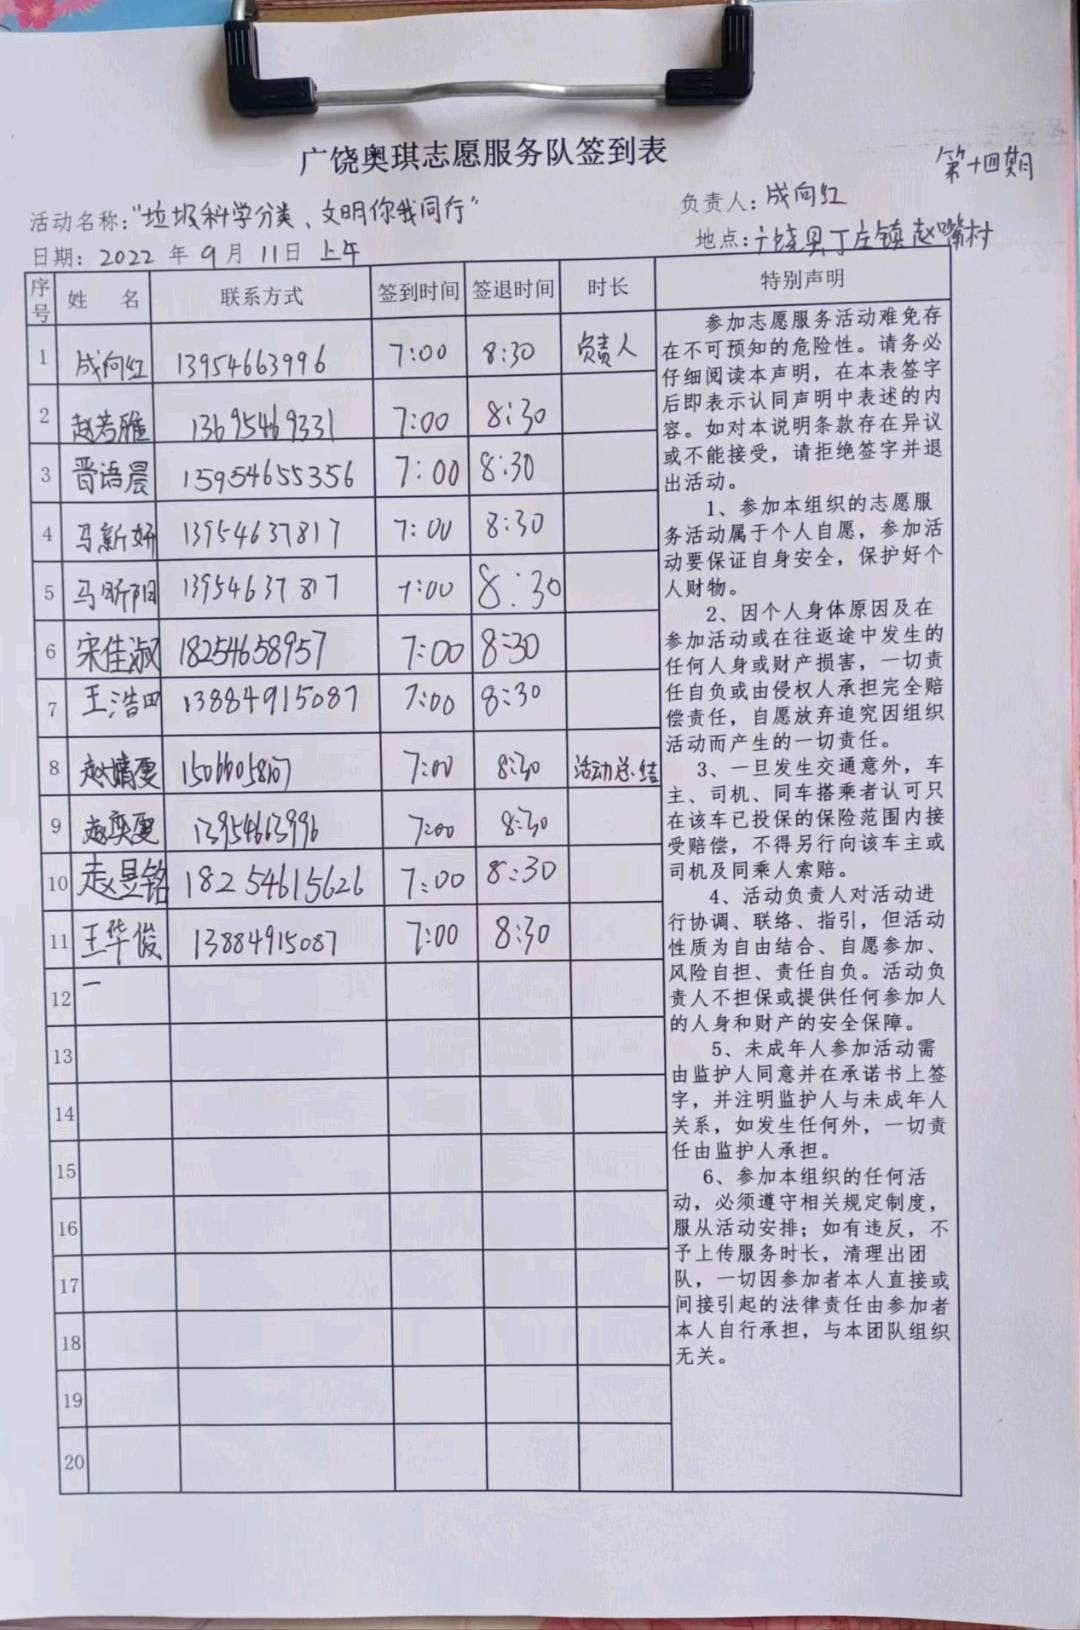 广饶奥琪志愿服务队签到表
第十四期
活动名称："垃圾科学分类、文明你我同行"
负责人：成向红
日期：2022年9月11日 上午
地点：广饶县丁庄镇赵嘴村
序号 姓 名 联系方式 签到时间 签退时间 时长 特别声明
1 成向红 13954663996 7:00 8:30 负责人
2 赵芳雅 13695469331 7:00 8:30
3 晋语晨 15954655356 7:00 8:30
4 马新妍 13954637817 7:00 8:30
5 马昕阳 13954637817 7:00 8:30
6 宋佳淑 18254658957 7:00 8:30
7 王浩田 13884915087 7:00 8:30
8 赵婧雯 7:00 8:30 活动总结
9 赵奕雯 13954663996 7:00 8:30
10 赵昱铭 18254615626 7:00 8:30
11 王华俊 13884915087 7:00 8:30
12 一
13
14
15
16
17
18
19
20
参加志愿服务活动难免存
在不可预知的危险性。请务必
仔细阅读本声明，在本表签字
后即表示认同声明中表述的内
容。如对本说明条款存在异议
或不能接受，请拒绝签字并退
出活动。
1、参加本组织的志愿服
务活动属于个人自愿，参加活
动要保证自身安全，保护好个
人财物。
2、因个人身体原因及在
参加活动或在往返途中发生的
任何人身或财产损害，一切责
任自负或由侵权人承担完全赔
偿责任，自愿放弃追究因组织
活动而产生的一切责任。
3、一旦发生交通意外，车
主、司机、同车搭乘者认可只
在该车已投保的保险范围内接
受赔偿，不得另行向该车主或
司机及同乘人索赔。
4、活动负责人对活动进
行协调、联络、指引，但活动
性质为自由结合、自愿参加、
风险自担、责任自负。活动负
责人不担保或提供任何参加人
的人身和财产的安全保障。
5、未成年人参加活动需
由监护人同意并在承诺书上签
字，并注明监护人与未成年人
关系，如发生任何外，一切责
任由监护人承担。
6、参加本组织的任何活
动，必须遵守相关规定制度，
服从活动安排；如有违反，不
予上传服务时长，清理出团
队，一切因参加者本人直接或
间接引起的法律责任由参加者
本人自行承担，与本团队组织
无关。